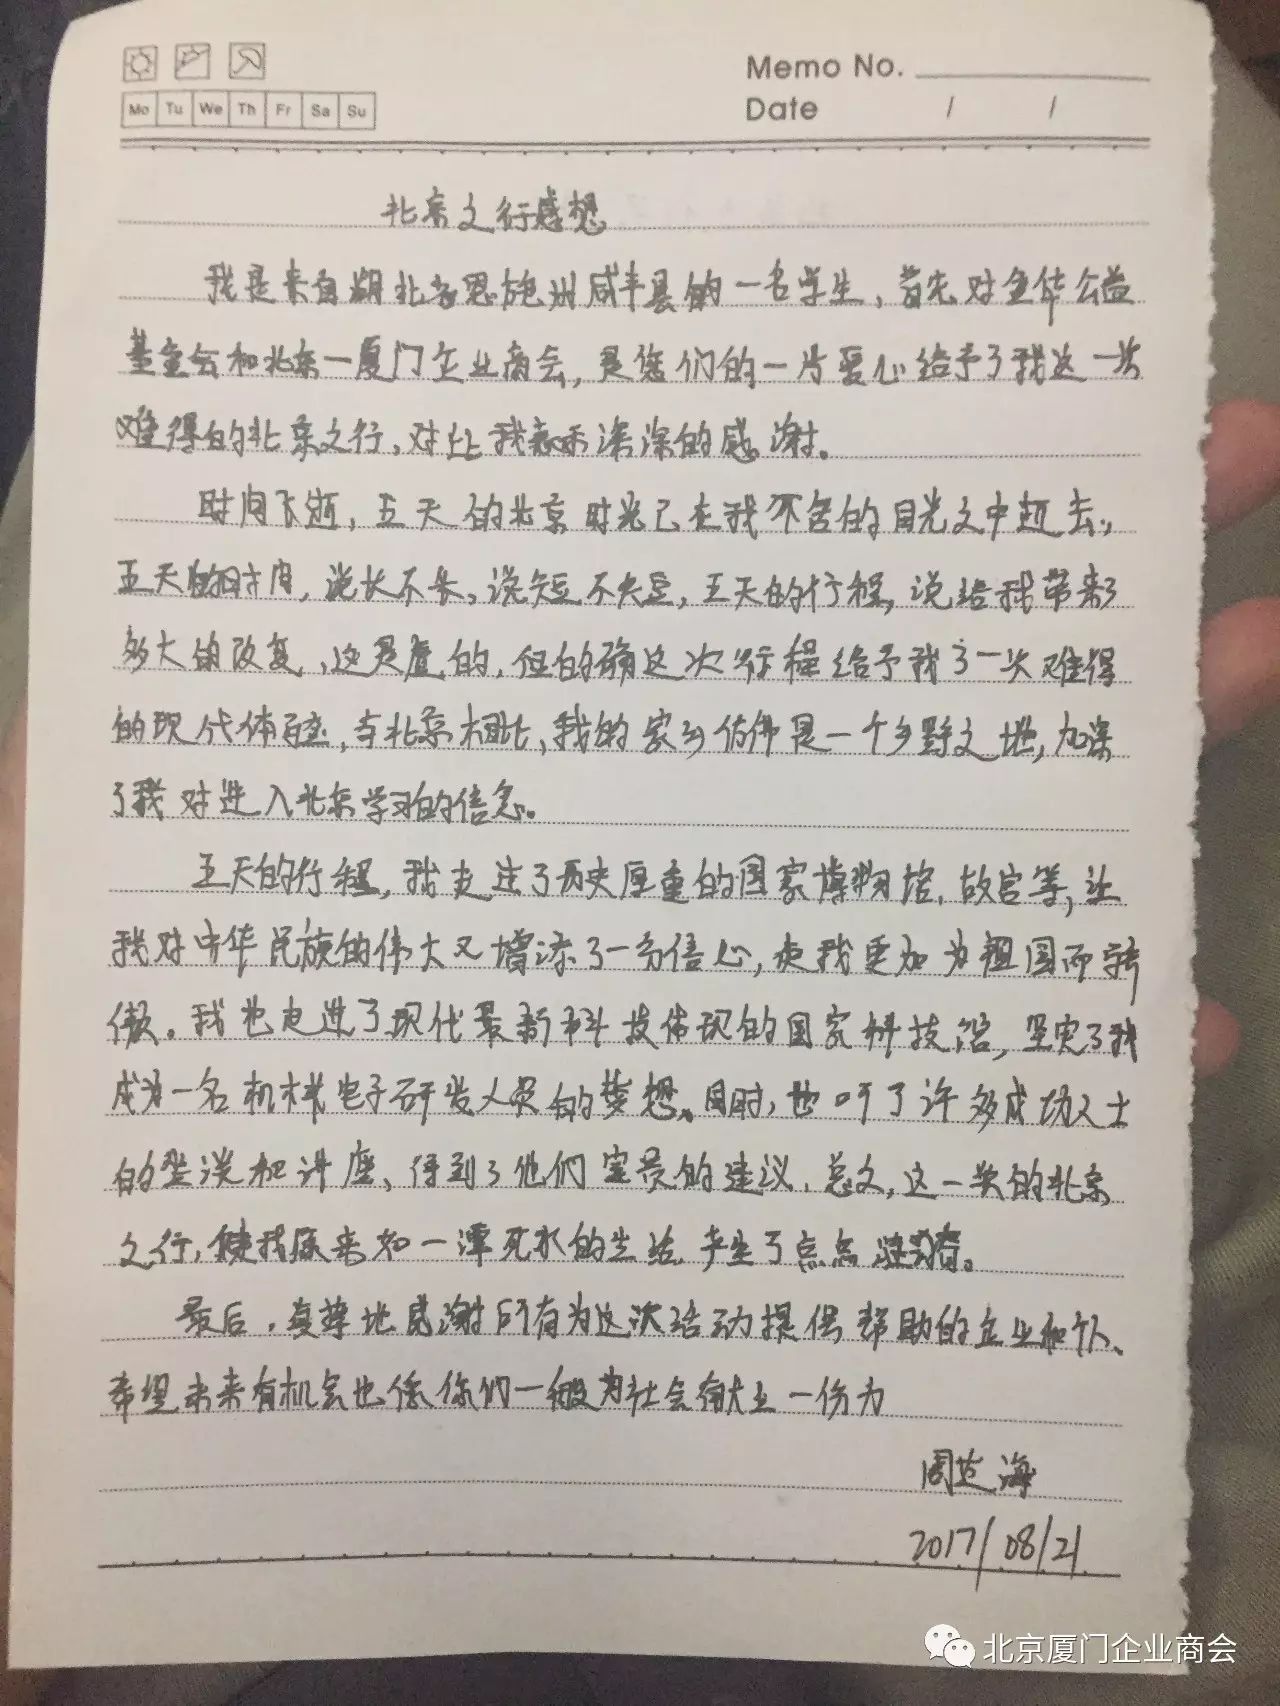 Memo No.
Mo Tu We Th Fr Sa Su
Date / /
北京之行感想
我是来自湖北省恩施州咸丰县的一名学生，首先对金华公益
基金会和北京一厦门企业商会，是您们的一片爱心给予了我这一次
难得的北京之行，对此我表示深深的感谢。
时间飞逝，五天的北京时光已在我不舍的目光之中逝去，
五天的时间，说长不长，说短不短，五天的行程，说给我带来
多大的改变，这是虚的，但的确这次行程给予我了一次难得
的现代体验，与北京相比，我的家乡仿佛是一个乡野之地，加深
了我对进入北京学习的信念。
五天的行程，我走进了历史厚重的国家博物馆、故宫等，让
我对中华民族的伟大又增添了一分信心，使我更加为祖国而骄
傲。我也走进了现代最新科技体现的国家科技馆，坚定了我
成为一名机械电子研发人员的梦想。同时，也听了许多成功人士
的座谈和讲座、得到了他们宝贵的建议，总之，这一次的北京
之行，使我原来如一潭死水的生活产生了点点涟漪。
最后，真挚地感谢所有为这次活动提供帮助的企业和个人、
希望未来有机会也像你们一般为社会献上一份力
周 海
2017/08/21
北京厦门企业商会